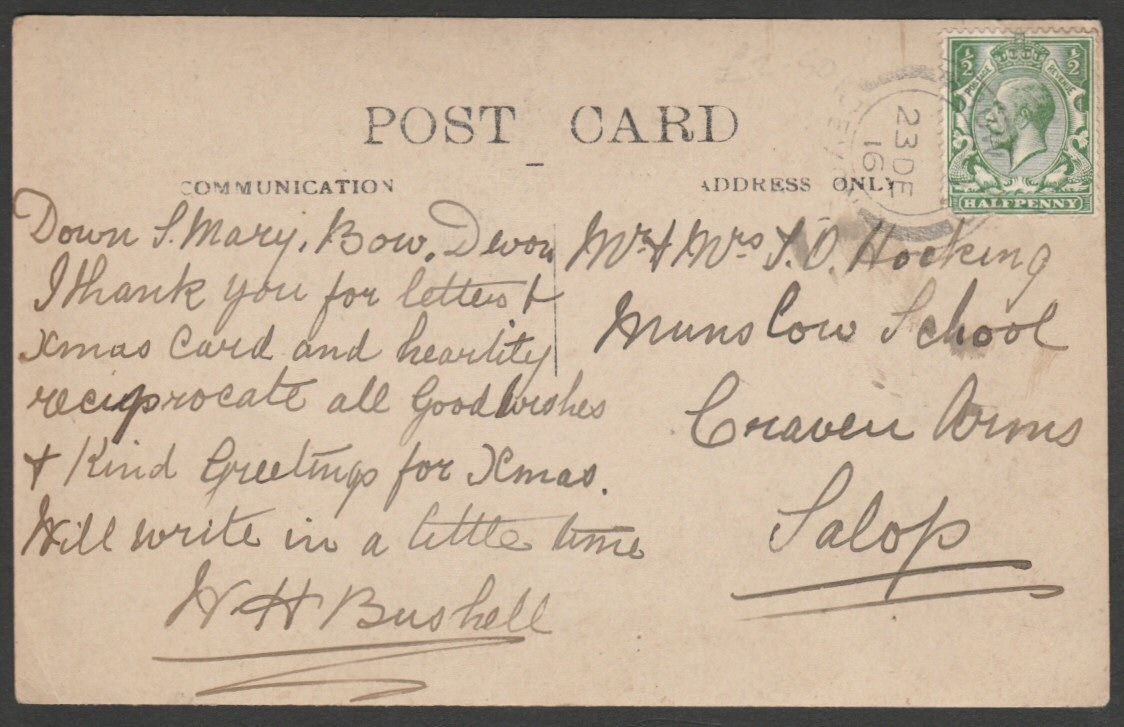 POST CARD
COMMUNICATION
ADDRESS ONLY
Down S. Mary, Bow, Devon
I thank you for letters &
Xmas Card and heartity
reciprocate all Good wishes
& Kind Greetings for Xmas.
Will write in a little time
W H Bushell
Mr & Mrs J. O. Hocking
Munslow School
Craven Arms
Salop
23 DE
16
½ ½
POSTAGE REVENUE
HALFPENNY